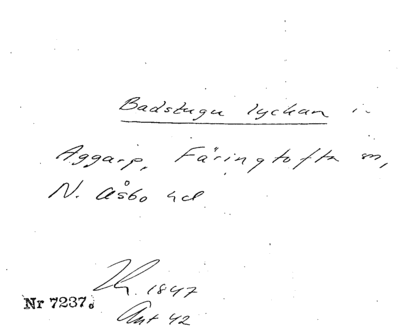 Badstugu lyckan i
Aggarp, Färingtofta sn,
N. Åsbo hd
1847
Ant 42
Nr 7237.